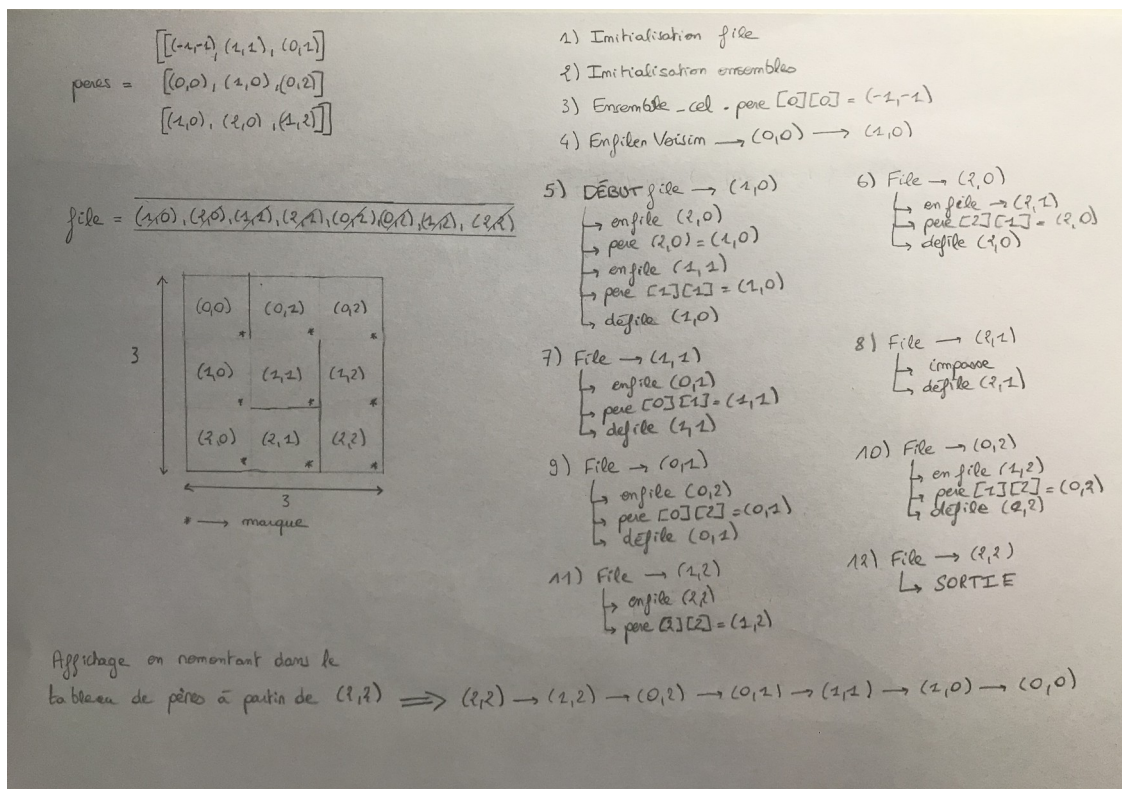 [[(-1,-1), (1,1), (0,1)]
peres = [(0,0), (1,0), (0,2)]
[(1,0), (2,0), (1,2)]]
file = (1,0), (2,0), (1,1), (2,1), (0,1), (0,2), (1,2), (2,2)
(0,0) (0,1) (0,2)
* * *
3
(1,0) (1,1) (1,2)
* * *
(2,0) (2,1) (2,2)
* * *
3
* → marque
1) Initialisation file
2) Initialisation ensembles
3) Ensemble_cel.pere [0][0] = (-1,-1)
4) Enfiler Voisin → (0,0) → (1,0)
5) DÉBUT file → (1,0)
↳ enfile (2,0)
↳ pere (2,0) = (1,0)
↳ enfile (1,1)
↳ pere [1][1] = (1,0)
↳ défile (1,0)
6) File → (2,0)
↳ enfile → (2,1)
↳ pere [2][1] = (2,0)
↳ defile (2,0)
7) File → (1,1)
↳ enfile (0,1)
↳ pere [0][1] = (1,1)
↳ defile (1,1)
8) File → (2,1)
↳ impasse
↳ défile (2,1)
9) File → (0,1)
↳ enfile (0,2)
↳ pere [0][2] = (0,1)
↳ défile (0,1)
10) File → (0,2)
↳ enfile (1,2)
↳ pere [1][2] = (0,2)
↳ défile (0,2)
11) File → (1,2)
↳ enfile (2,2)
↳ pere [2][2] = (1,2)
12) File → (2,2)
↳ SORTIE
Affichage en remontant dans le
tableau de pères à partir de (2,2) ⟹ (2,2) → (1,2) → (0,2) → (0,1) → (1,1) → (1,0) → (0,0)